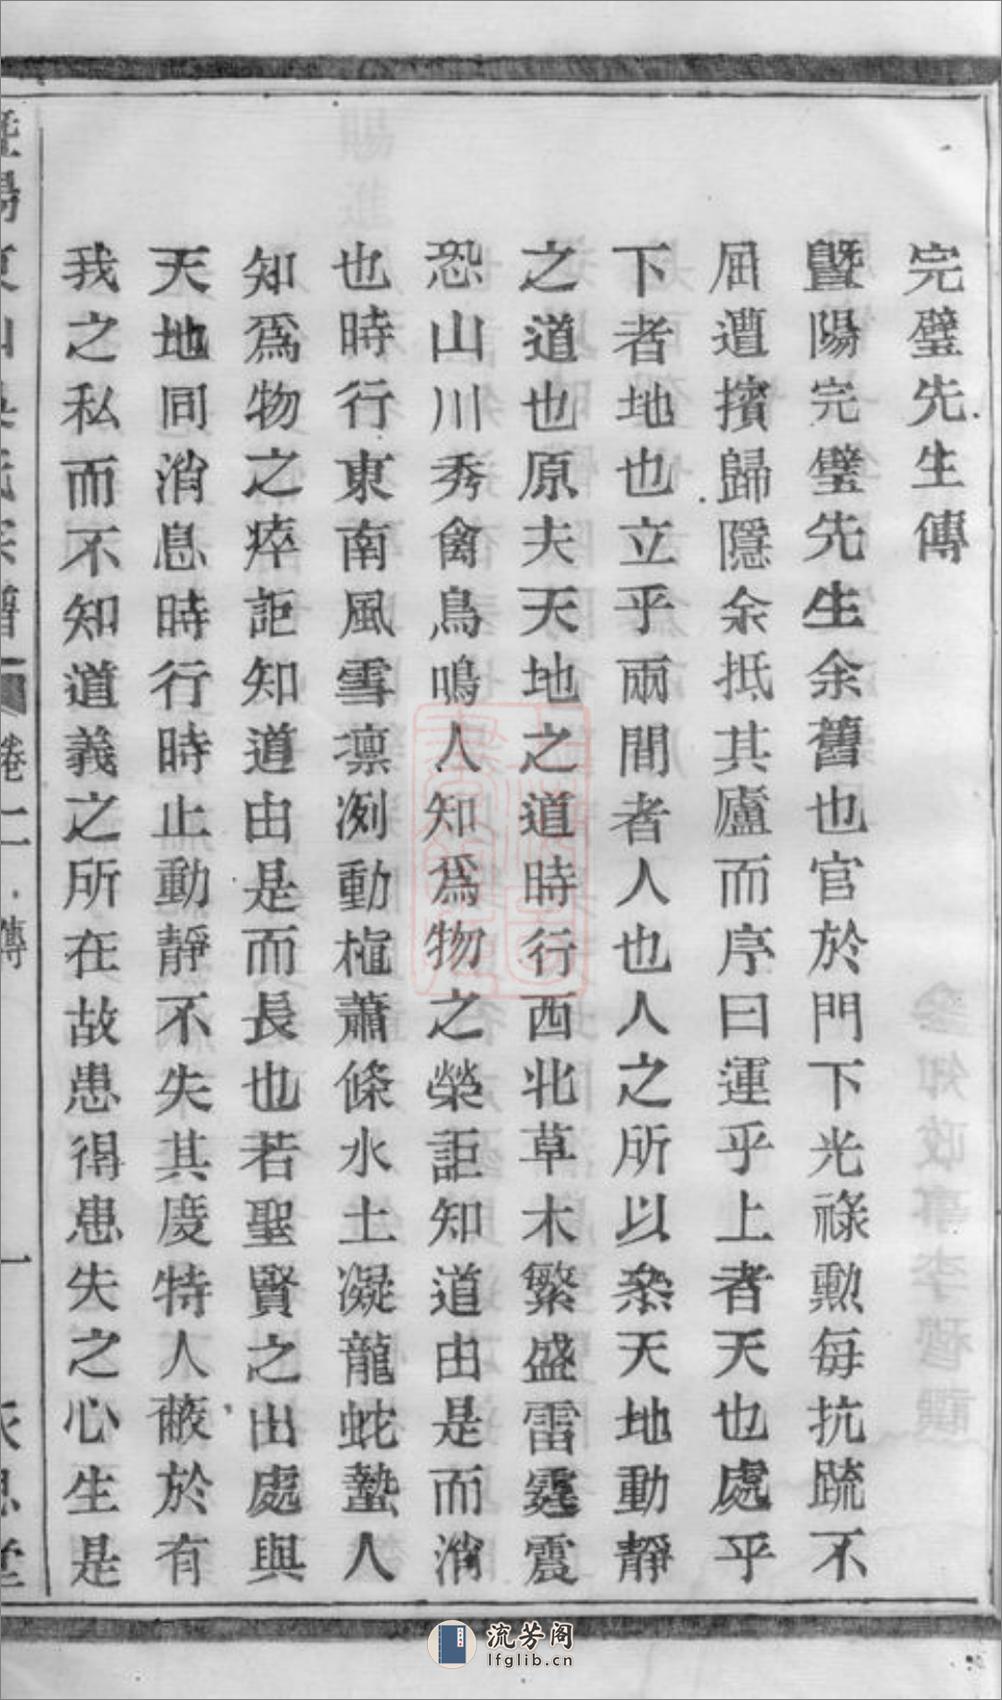 完璧先生傳
暨陽完璧先生余舊也官於門下光祿勲每抗䟽不
屈遭擯歸隱余抵其廬而序曰運乎上者天也處乎
下者地也立乎兩間者人也人之所以叅天地動靜
之道也原夫天地之道時行西北草木繁盛雷霆震
恐山川秀禽鳥鳴人知爲物之榮詎知道由是而消
也時行東南風雪凛冽動植蕭條水土凝龍蛇蟄人
知爲物之瘁詎知道由是而長也若聖賢之出處與
天地同消息時行時止動靜不失其度特人蔽於有
我之私而不知道義之所在故患得患失之心生是
卷一 傳
一
流芳阁
lfglib.cn